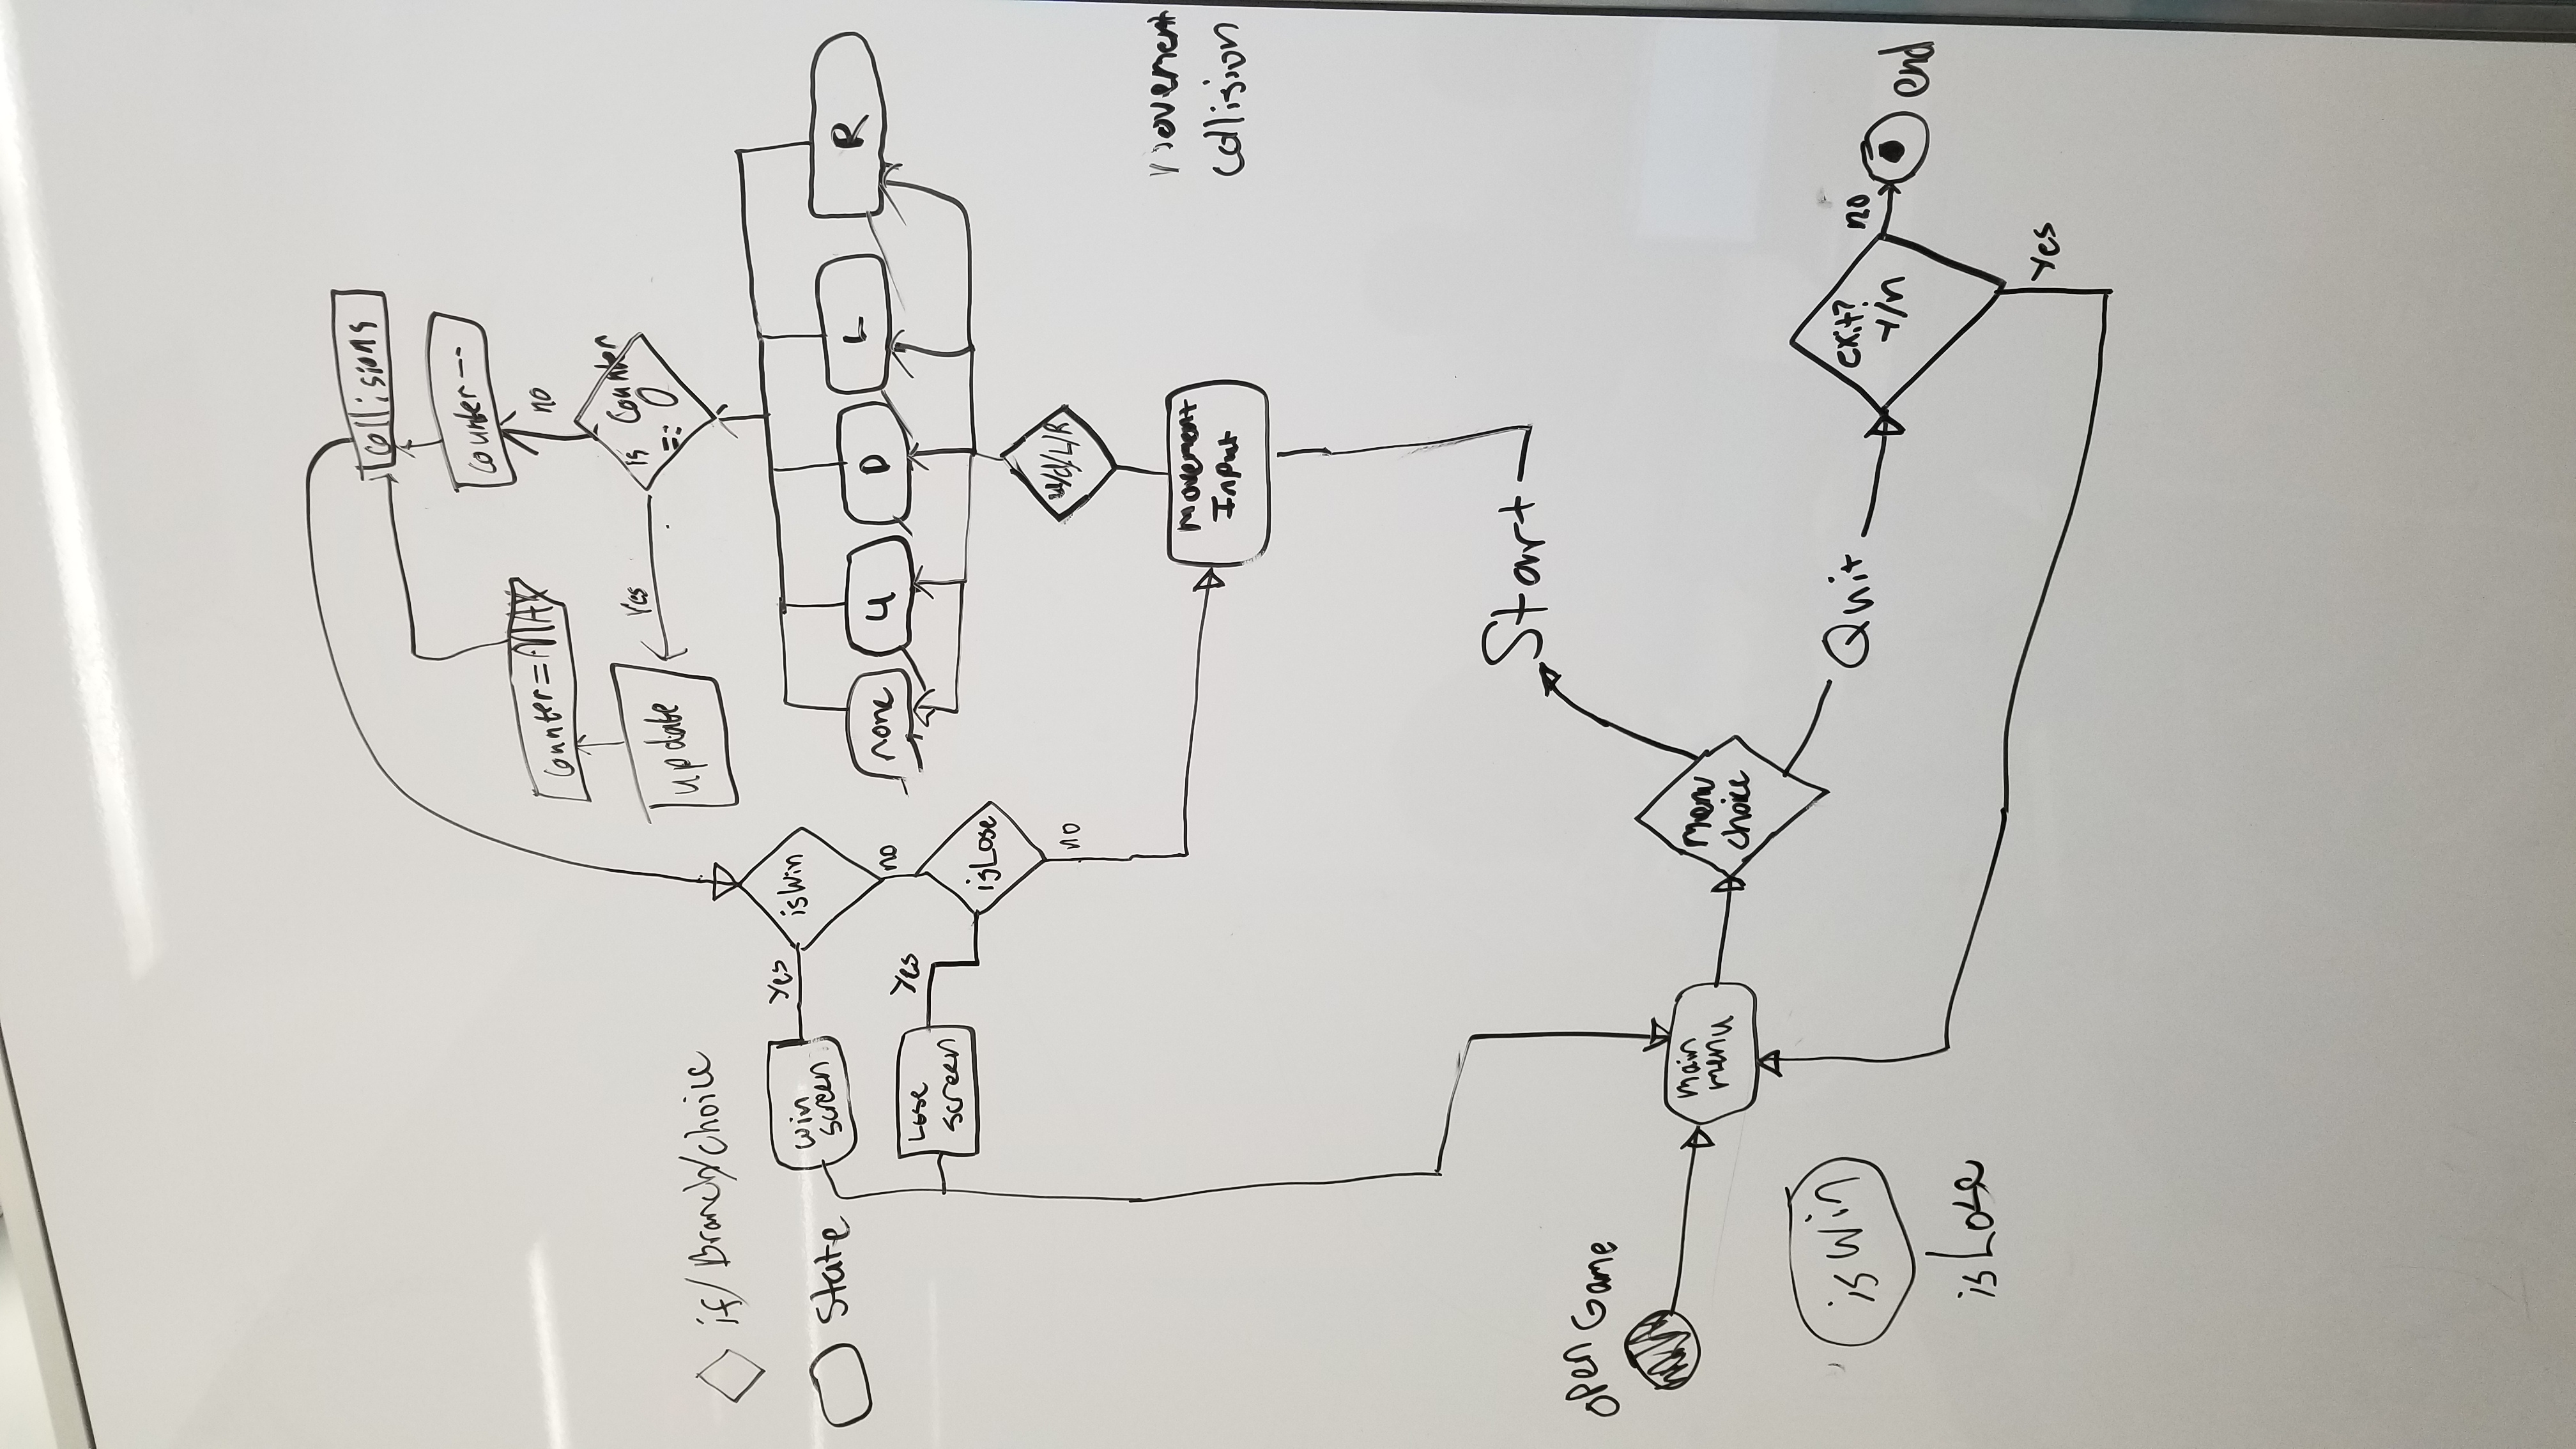 collisions
counter--
no
counter=MAX
is Counter
== 0
Yes
update
if/Branch/choice
State
win
screen
Yes
isWin
no
Lose
screen
Yes
isLose
no
none
U
D
L
R
u/d/L/R
Movement
Input
Movement
collision
Start
open Game
main
menu
menu
choice
Quit
exit?
Y/n
no
end
yes
isWin
isLose